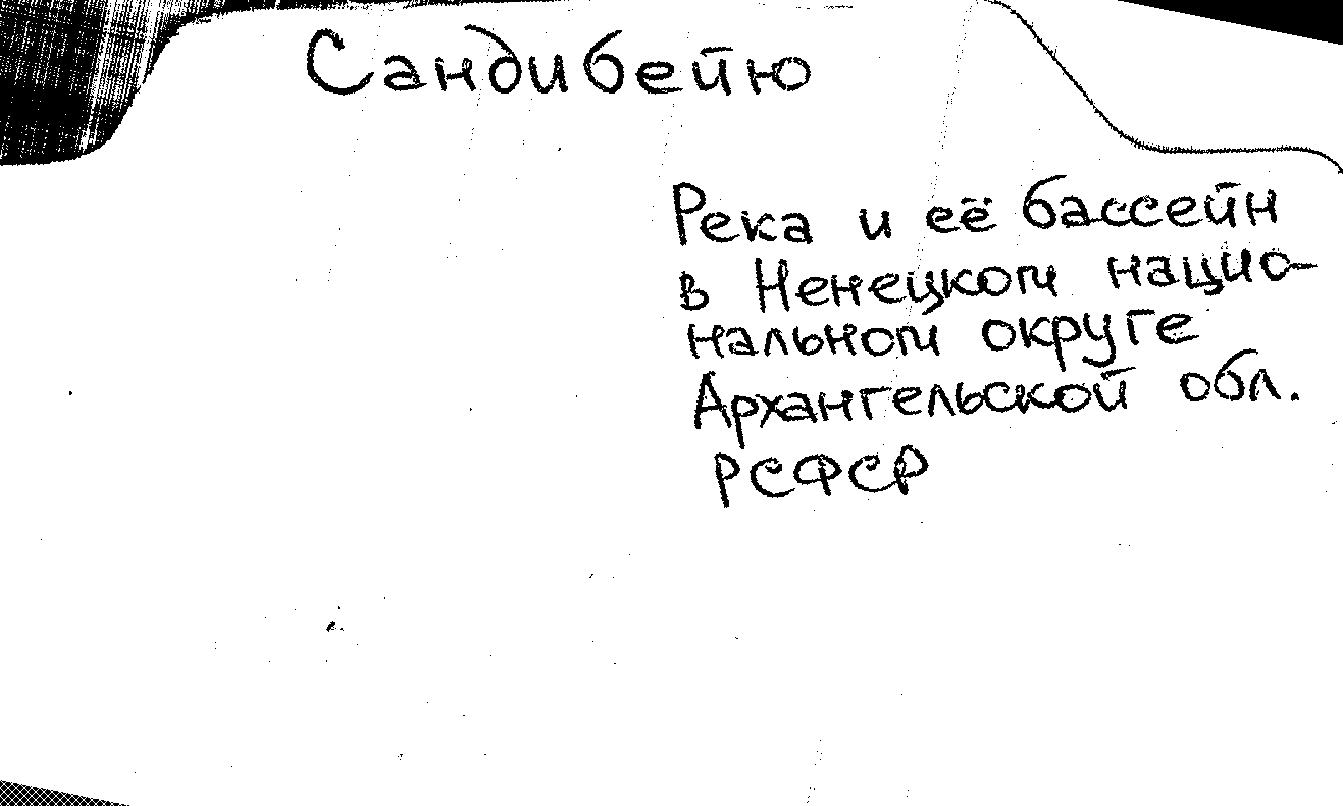 Сандибейю
Река и её бассейн
в Ненецком нацио-
нальном округе
Архангельской обл.
РСФСР